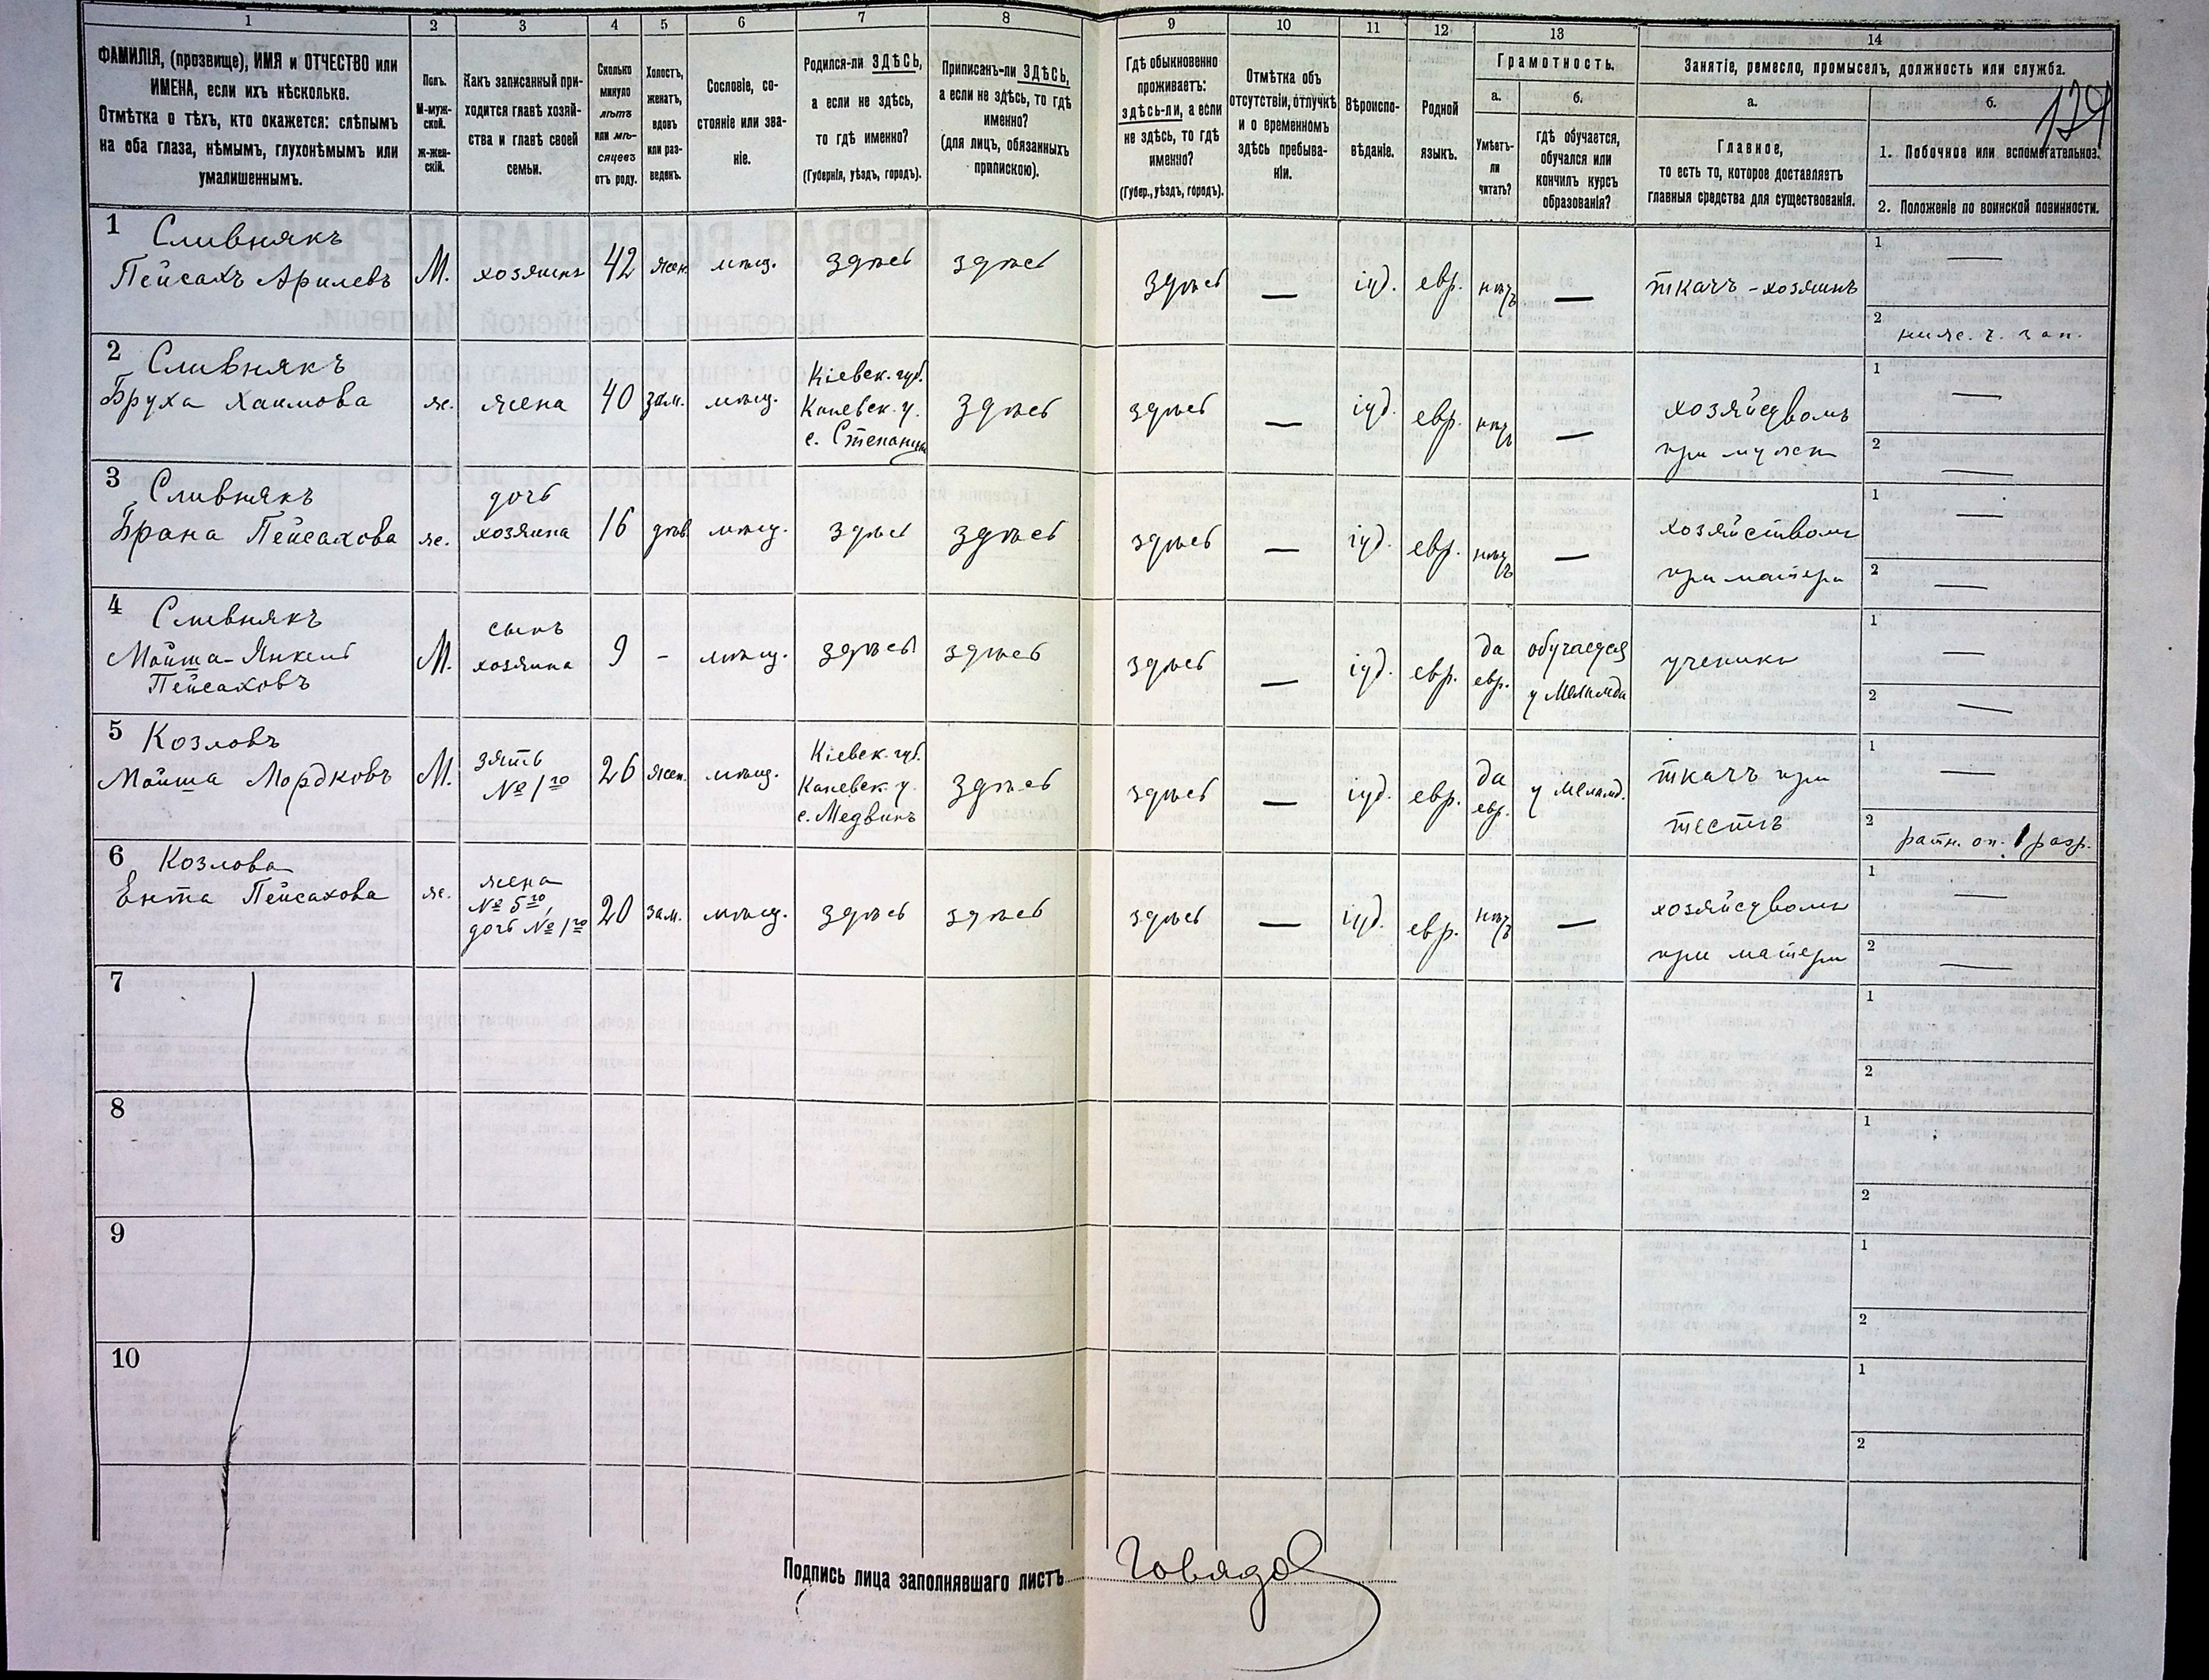 1 2 3 4 5 6 7 8 9 10 11 12 13 14
ФАМИЛІЯ, (прозвище), ИМЯ и ОТЧЕСТВО или
ИМЕНА, если ихъ нѣсколько.
Отмѣтка о тѣхъ, кто окажется: слѣпымъ
на оба глаза, нѣмымъ, глухонѣмымъ или
умалишеннымъ.
Полъ.
М-муж-
ской.
ж-жен-
скій.
Какъ записанный при-
ходится главѣ хозяй-
ства и главѣ своей
семьи.
Сколько
минуло
лѣтъ
или мѣ-
сяцевъ
отъ роду.
Холостъ,
женатъ,
вдовъ
или раз-
веденъ.
Сословіе, со-
стояніе или зва-
ніе.
Родился-ли ЗДѢСЬ,
а если не здѣсь,
то гдѣ именно?
(Губернія, уѣздъ, городъ).
Приписанъ-ли ЗДѢСЬ,
а если не здѣсь, то гдѣ
именно?
(для лицъ, обязанныхъ
припискою).
Гдѣ обыкновенно
проживаетъ:
здѣсь-ли, а если
не здѣсь, то гдѣ
именно?
(Губер., уѣздъ, городъ).
Отмѣтка объ
отсутствіи, отлучкѣ
и о временномъ
здѣсь пребыва-
ніи.
Вѣроиспо-
вѣданіе.
Родной
языкъ.
Грамотность.
а.
Умѣетъ-
ли
читать?
б.
гдѣ обучается,
обучался или
кончилъ курсъ
образованія?
Занятіе, ремесло, промыселъ, должность или служба.
а.
Главное,
то есть то, которое доставляетъ
главныя средства для существованія.
б.
1. Побочное или вспомогательное.
2. Положеніе по воинской повинности.
1
Сливнякъ
Пейсахъ Арилевъ
М.
хозяинъ
42
жен
мѣщ.
здѣсь
здѣсь
здѣсь
—
іуд.
евр.
нѣтъ
—
ткачъ - хозяинъ
1
—
2
ниж. ч. зап.
2
Сливнякъ
Бруха Хаимова
ж.
жена
40
зам.
мѣщ.
Кіевск. губ.
Каневск. у.
с. Степанцы
здѣсь
здѣсь
—
іуд.
евр.
нѣтъ
—
хозяйством
при мужѣ
1
—
2
—
3
Сливнякъ
Брана Пейсахова
ж.
дочь
хозяина
16
дѣв.
мѣщ.
здѣсь
здѣсь
здѣсь
—
іуд.
евр.
нѣтъ
—
хозяйством
при матери
1
—
2
—
4
Сливнякъ
Мойша-Янкель
Пейсаховъ
М.
сынъ
хозяина
9
-
мѣщ.
здѣсь
здѣсь
здѣсь
—
іуд.
евр.
да
евр.
обучается
у Меламда
ученикъ
1
—
2
—
5
Козловъ
Мойша Мордковъ
М.
зять
№ 1го
26
жен.
мѣщ.
Кіевск. губ.
Каневск. у.
с. Медвинъ
здѣсь
здѣсь
—
іуд.
евр.
да
евр.
у Меламд.
ткачъ при
тестѣ
1
—
2
ратн. оп. 1 разр.
6
Козлова
Ента Пейсахова
ж.
жена
№ 5го,
дочь № 1го
20
зам.
мѣщ.
здѣсь
здѣсь
здѣсь
—
іуд.
евр.
нѣтъ
—
хозяйством
при матери
1
—
2
—
7
1
2
8
1
2
9
1
2
10
1
2
Подпись лица заполнявшаго листъ